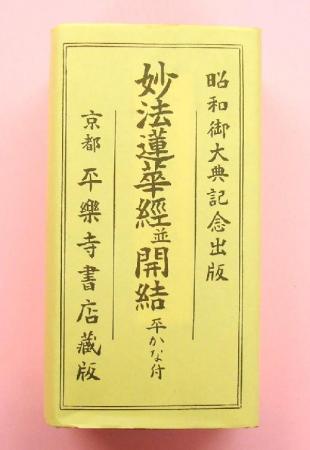 昭和御大典記念出版
妙法蓮華經並開結 平かな付
京都 平樂寺書店藏版